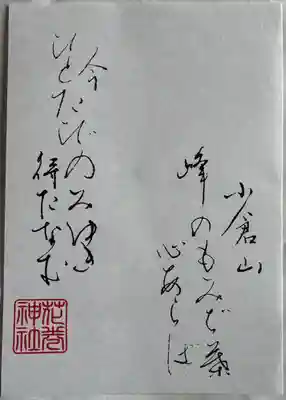 小倉山
峰のもみぢ葉
心あらば
今
ひとたびのみゆき
待たなむ
神社